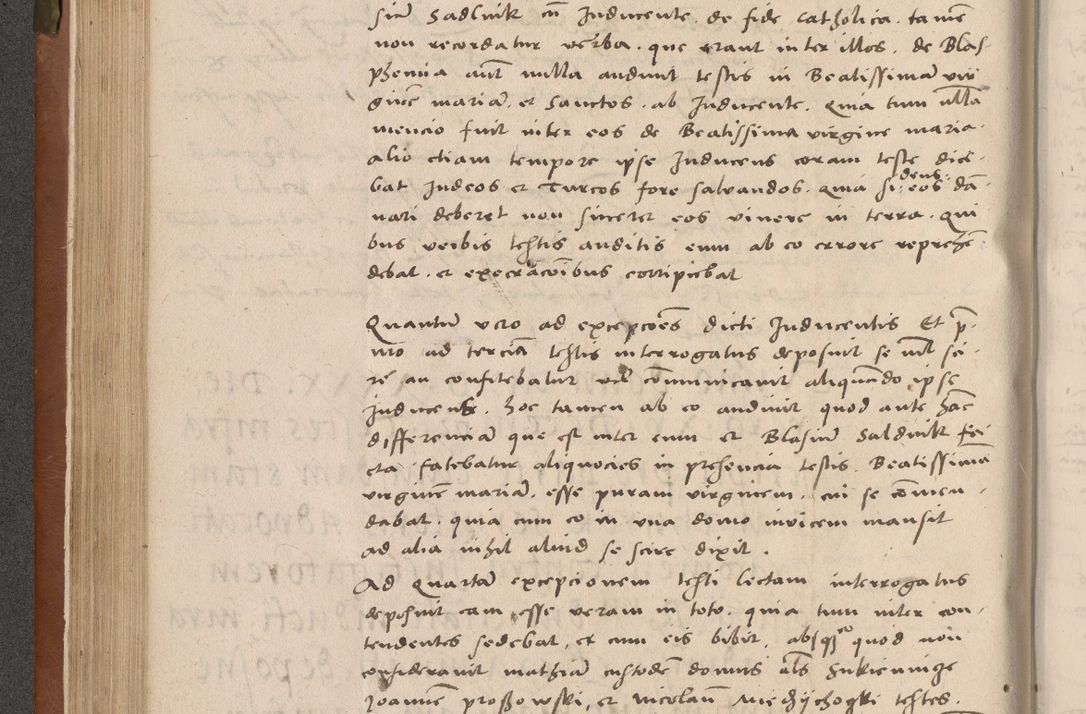 sium Sadlnik cum Inducente de fide catholica. tamen
non recordatur verba. que erant inter illos. de Blas-
phemia autem nulla audiuit testis in Beatissimam vir
ginem mariam et Sanctos. ab Inducente. Quia tum vlla
mencio fuit inter eos de Beatissima virgine maria.
alio etiam tempore ipse Inducens coram teste dice-
bat Iudeos et Turcos fore saluandos. Quia si deus eos dam-
nari deberet non sineret eos viuere in terra. Qui
bus verbis testis auditis eum ab eo errore reprehen-
debat. et execracionibus corripiebat
Quantum vero ad excepciones dicti Inducentis Et pri-
mo ad terciam testis interrogatus deposuit se nihil sci-
re an confitebatur vel communicauit aliquando ipse
Inducens. hoc tamen ab eo audiuit quod ante hanc
differenciam que est inter eum et Blasium Saldnik
cta fatebatur aliquocies in presencia testis. Beatissimam
virginem mariam. esse puram virginem. cui se commen-
dabat. quia cum eo in vna domo inuicem mansit
ad alia nihil aliud se scire dixit.
Ad Quartam excepcionem testi lectam interrogatus
deposuit eam esse veram in toto. quia tum inter con-
tendentes sedebat, et cum eis bibit, quod non
considerauit mathiam custodem domus als Sukiennicze
Joannem proszowski, et Nicolaum testes.